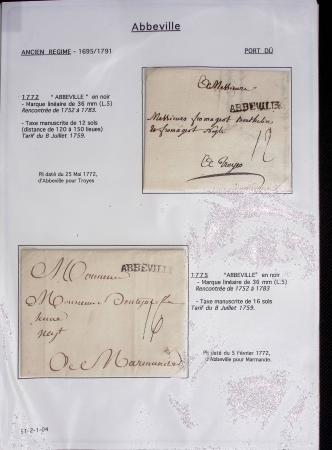 Abbeville
ANCIEN REGIME - 1695/1791
PORT DÛ
1772 "ABBEVILLE" en noir
- Marque linéaire de 36 mm (L.5)
Rencontrée de 1752 à 1783.
- Taxe manuscrite de 12 sols
(distance de 120 à 150 lieues)
Tarif du 8 Juillet 1759.
Pli daté du 25 Mai 1772,
d'Abbeville pour Troyes
A Messieurs
ABBEVILLE
Messieurs fromageot
& fromageot
12
A Troyes
A Monsieur
ABBEVILLE
Monsieur
16
A Marmande
1775 "ABBEVILLE" en noir
- Marque linéaire de 36 mm (L.5)
Rencontrée de 1752 à 1783
- Taxe manuscrite de 16 sols
Tarif du 8 Juillet 1759.
Pli daté du 5 Février 1772,
d'Abbeville pour Marmande.
E1-2-1-04